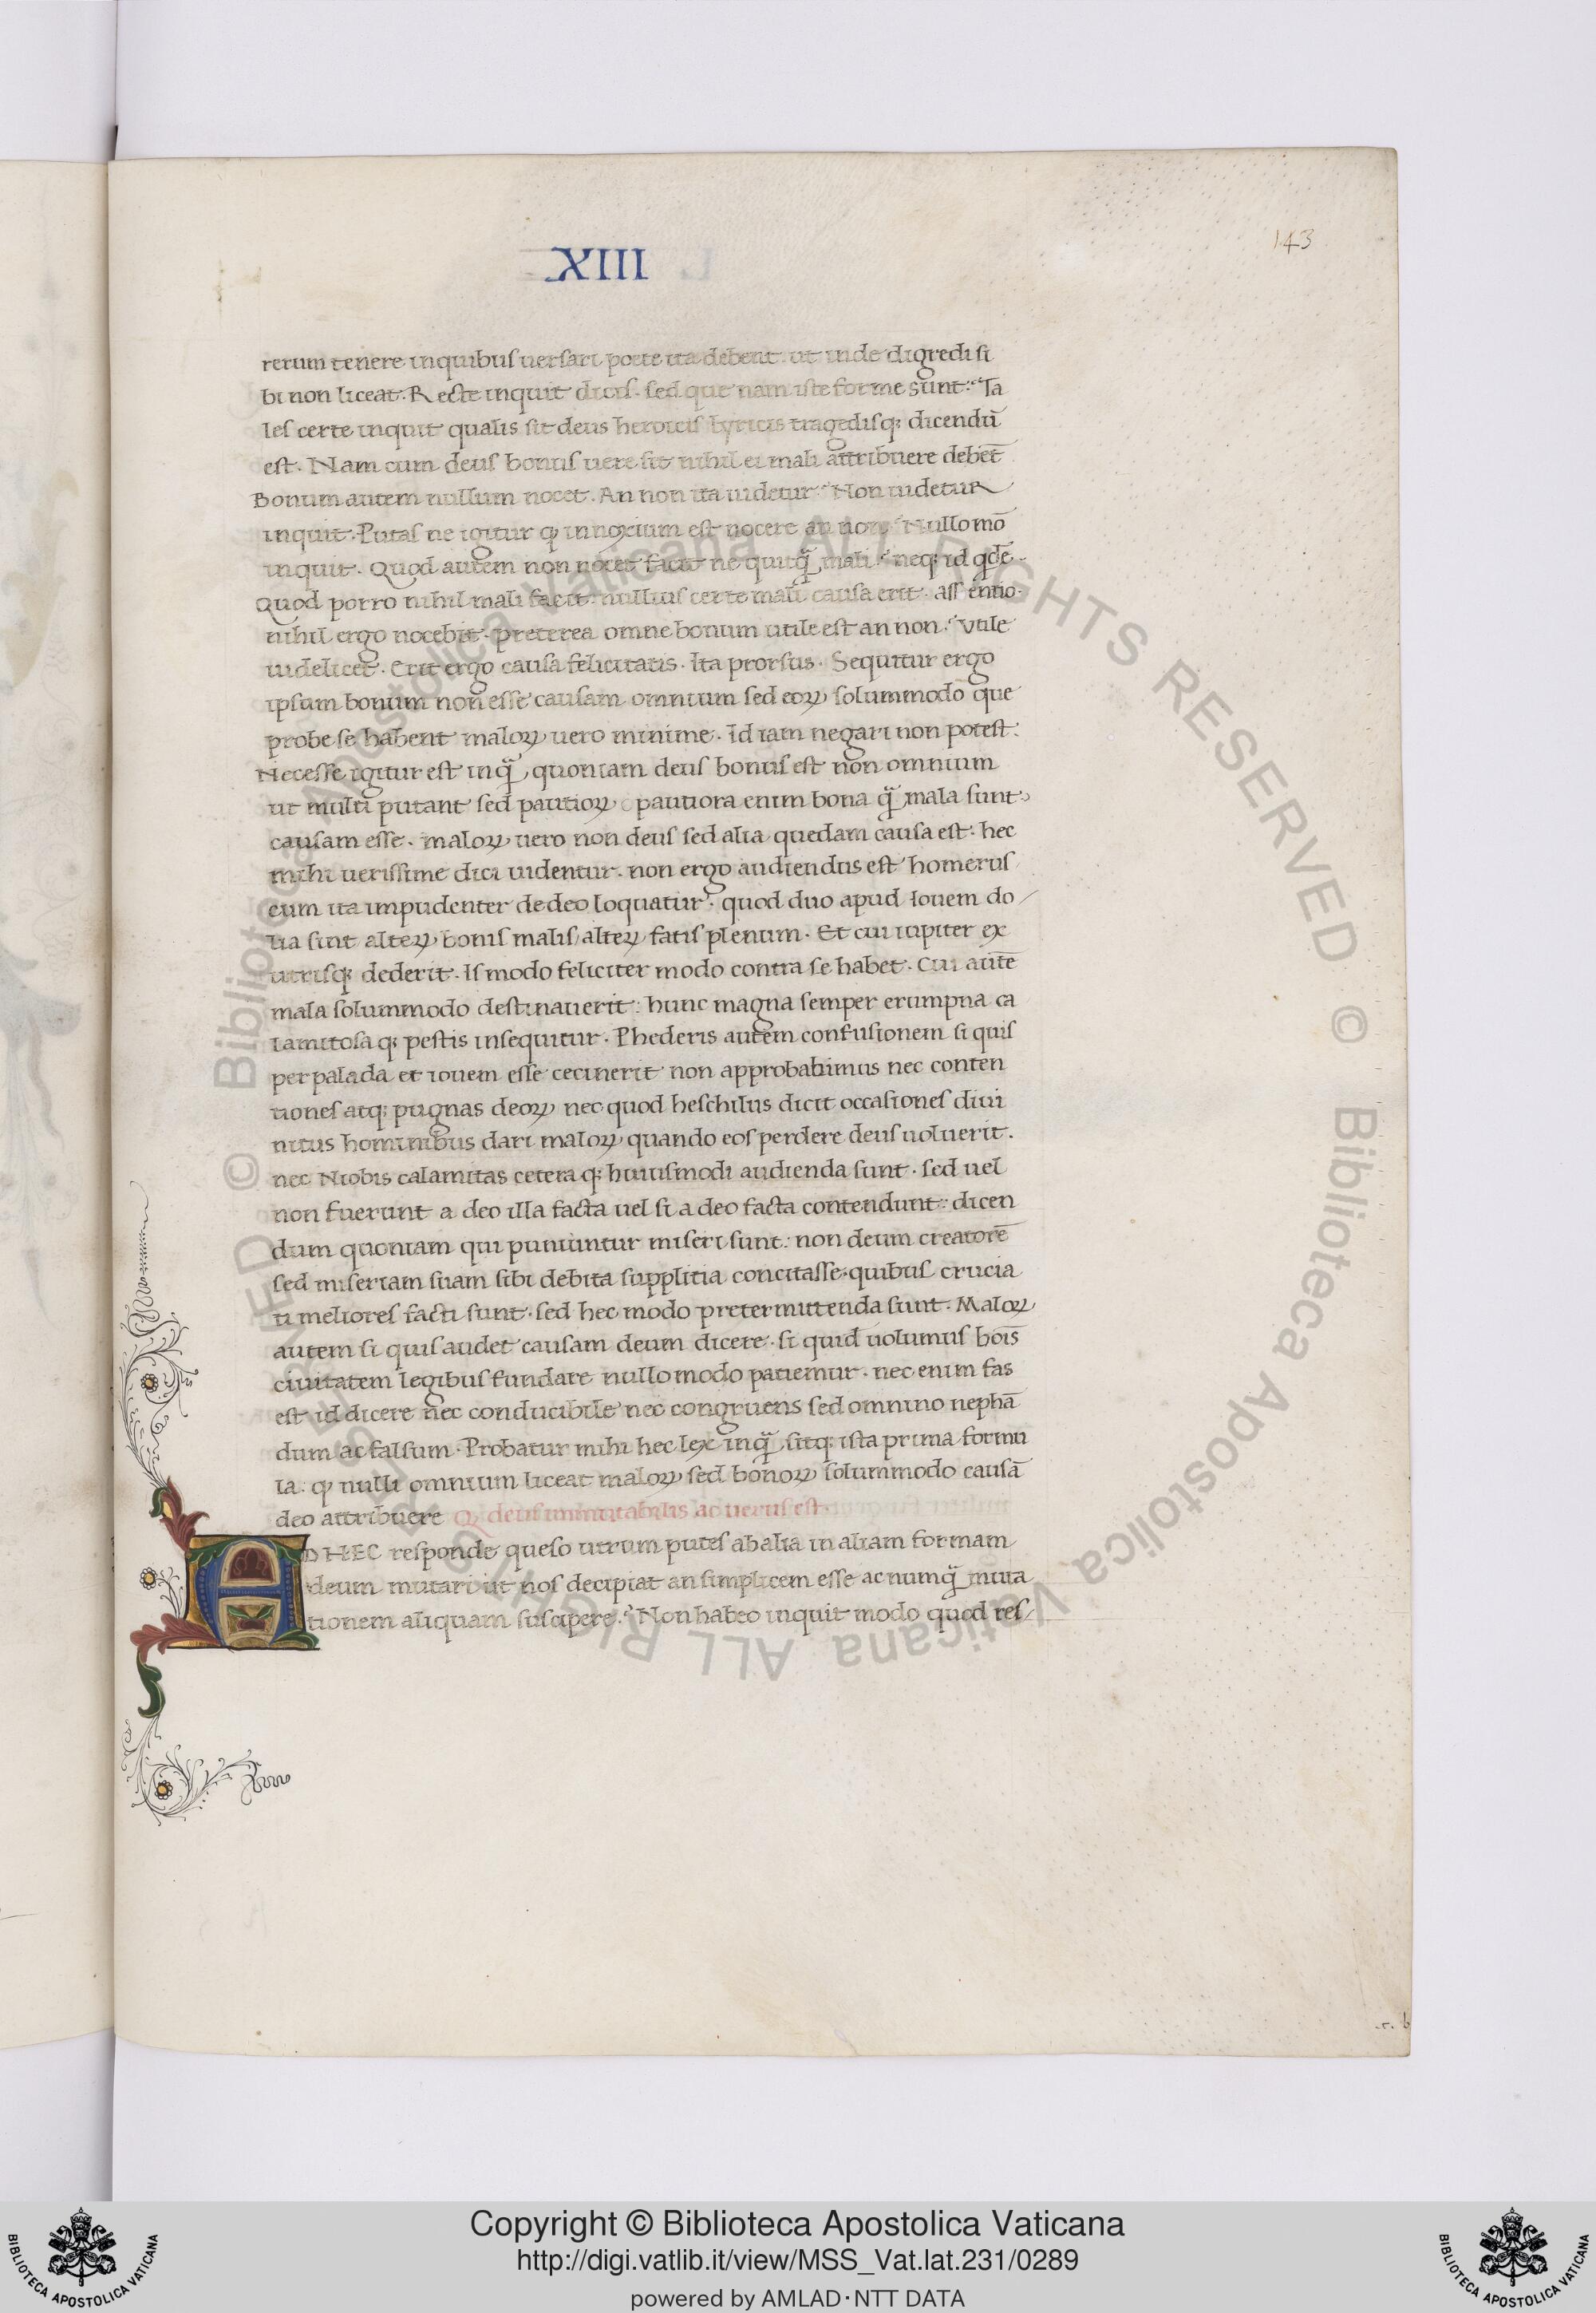 143
XIIII
rerum tenere inquibus uersari poete ita debent ut inde digredi si
bi non liceat. Recte inquit dicis. sed que nam iste forme sunt? Ta
les certe inquit qualis sit deus heroicis lyricis tragedisq; dicendū
est. Nam cum deus bonus uere sit nihil ei mali attribuere debēt
Bonum autem nullum nocet. An non ita uidetur? Non uidetur
inquit. Putas ne igitur ꝙ innoxium est nocere an non? Nullo mō
inquit. Quod autem non nocet facit ne quitq̄ mali? neq; id qdē.
Quod porro nihil mali facit nullius certe mali causa erit. assentio.
nihil ergo nocebit. preterea omne bonum utile est an non? Vtile
uidelicet. Erit ergo causa felicitatis. Ita prorsus. Sequitur ergo
ipsum bonum non esse causam omnium sed eoꝝ solummodo que
probe se habent maloꝝ uero minime. Id iam negari non potest.
Necesse igitur est inq̄ quoniam deus bonus est non omnium
ut multi putant sed pautioꝝ pautiora enim bona q̄ mala sunt
causam esse. maloꝝ uero non deus sed alia quedam causa est. hec
mihi uerissime dici uidentur. non ergo audiendus est homerus
cum ita impudenter de deo loquatur. quod duo apud Iouem do
lia sint alteꝝ bonis malis alteꝝ fatis plenum. Et cui iupiter ex
utrisq; dederit. Is modo feliciter modo contra se habet. Cui autē
mala solummodo destinauerit: hunc magna semper erumpna ca
lamitosa q; pestis insequitur. Phederis autem confusionem si quis
per palada et iouem esse cecinerit non approbabimus nec conten
tiones atq; pugnas deoꝝ nec quod heschilus dicit occasiones diui
nitus hominibus dari maloꝝ quando eos perdere deus uoluerit.
nec Niobis calamitas cetera q; huiusmodi audienda sunt. sed uel
non fuerunt a deo illa facta uel si a deo facta contendunt: dicen
dum quoniam qui puniuntur miseri sunt: non deum creatorē
sed miseriam suam sibi debita supplitia concitasse. quibus crucia
ti meliores facti sunt. sed hec modo pretermittenda sunt. Maloꝝ
autem si quis audet causam deum dicere. si quid uolumus bois̄
ciuitatem legibus fundare nullo modo patiemur. nec enim fas
est id dicere nec conducibile nec congruens sed omnino nephā
dum ac falsum. Probatur mihi hec lex inq̄ sitq; ista prima formu
la: ꝙ nulli omnium liceat maloꝝ sed bonoꝝ solummodo causā
deo attribuere Q deus immutabilis ac uerus est.
AD HEC responde queso utrum putes ab alia in aliam formam
deum mutari ut nos decipiat an simplicem esse ac numq̄ muta
tionem aliquam suscipere? Non habeo inquit modo quod res
Copyright © Biblioteca Apostolica Vaticana
http://digi.vatlib.it/view/MSS_Vat.lat.231/0289
powered by AMLAD·NTT DATA
BIBLIOTECA APOSTOLICA VATICANA
BIBLIOTECA APOSTOLICA VATICANA
© Biblioteca Apostolica Vaticana ALL RIGHTS RESERVED
© Biblioteca Apostolica Vaticana ALL RIGHTS RESERVED